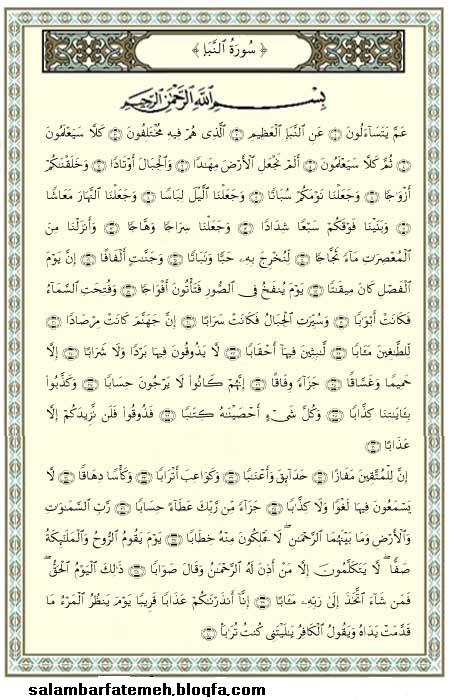 ﴿ سُورَةُ النَّبَإِ ﴾
بِسْمِ اللَّهِ الرَّحْمَٰنِ الرَّحِيمِ
عَمَّ يَتَسَآءَلُونَ ۝ عَنِ ٱلنَّبَإِ ٱلْعَظِيمِ ۝ ٱلَّذِى هُمْ فِيهِ مُخْتَلِفُونَ ۝ كَلَّا سَيَعْلَمُونَ
۝ ثُمَّ كَلَّا سَيَعْلَمُونَ ۝ أَلَمْ نَجْعَلِ ٱلْأَرْضَ مِهَٰدًا ۝ وَٱلْجِبَالَ أَوْتَادًا ۝ وَخَلَقْنَٰكُمْ
أَزْوَٰجًا ۝ وَجَعَلْنَا نَوْمَكُمْ سُبَاتًا ۝ وَجَعَلْنَا ٱلَّيْلَ لِبَاسًا ۝ وَجَعَلْنَا ٱلنَّهَارَ مَعَاشًا
۝ وَبَنَيْنَا فَوْقَكُمْ سَبْعًا شِدَادًا ۝ وَجَعَلْنَا سِرَاجًا وَهَّاجًا ۝ وَأَنزَلْنَا مِنَ
ٱلْمُعْصِرَٰتِ مَآءً ثَجَّاجًا ۝ لِّنُخْرِجَ بِهِۦ حَبًّا وَنَبَاتًا ۝ وَجَنَّٰتٍ أَلْفَافًا ۝ إِنَّ يَوْمَ
ٱلْفَصْلِ كَانَ مِيقَٰتًا ۝ يَوْمَ يُنفَخُ فِى ٱلصُّورِ فَتَأْتُونَ أَفْوَاجًا ۝ وَفُتِحَتِ ٱلسَّمَآءُ
فَكَانَتْ أَبْوَٰبًا ۝ وَسُيِّرَتِ ٱلْجِبَالُ فَكَانَتْ سَرَابًا ۝ إِنَّ جَهَنَّمَ كَانَتْ مِرْصَادًا ۝
لِّلطَّٰغِينَ مَـَٔابًا ۝ لَّٰبِثِينَ فِيهَآ أَحْقَابًا ۝ لَّا يَذُوقُونَ فِيهَا بَرْدًا وَلَا شَرَابًا ۝ إِلَّا
حَمِيمًا وَغَسَّاقًا ۝ جَزَآءً وِفَاقًا ۝ إِنَّهُمْ كَانُوا۟ لَا يَرْجُونَ حِسَابًا ۝ وَكَذَّبُوا۟
بِـَٔايَٰتِنَا كِذَّابًا ۝ وَكُلَّ شَىْءٍ أَحْصَيْنَٰهُ كِتَٰبًا ۝ فَذُوقُوا۟ فَلَن نَّزِيدَكُمْ إِلَّا
عَذَابًا ۝
إِنَّ لِلْمُتَّقِينَ مَفَازًا ۝ حَدَآئِقَ وَأَعْنَٰبًا ۝ وَكَوَاعِبَ أَتْرَابًا ۝ وَكَأْسًا دِهَاقًا ۝ لَّا
يَسْمَعُونَ فِيهَا لَغْوًا وَلَا كِذَّٰبًا ۝ جَزَآءً مِّن رَّبِّكَ عَطَآءً حِسَابًا ۝ رَّبِّ ٱلسَّمَٰوَٰتِ
وَٱلْأَرْضِ وَمَا بَيْنَهُمَا ٱلرَّحْمَٰنِ ۖ لَا يَمْلِكُونَ مِنْهُ خِطَابًا ۝ يَوْمَ يَقُومُ ٱلرُّوحُ وَٱلْمَلَٰٓئِكَةُ
صَفًّا ۖ لَّا يَتَكَلَّمُونَ إِلَّا مَنْ أَذِنَ لَهُ ٱلرَّحْمَٰنُ وَقَالَ صَوَابًا ۝ ذَٰلِكَ ٱلْيَوْمُ ٱلْحَقُّ ۖ
فَمَن شَآءَ ٱتَّخَذَ إِلَىٰ رَبِّهِۦ مَـَٔابًا ۝ إِنَّآ أَنذَرْنَٰكُمْ عَذَابًا قَرِيبًا يَوْمَ يَنظُرُ ٱلْمَرْءُ مَا
قَدَّمَتْ يَدَاهُ وَيَقُولُ ٱلْكَافِرُ يَٰلَيْتَنِى كُنتُ تُرَٰبًۢا ۝
salambarfatemeh.blogfa.com